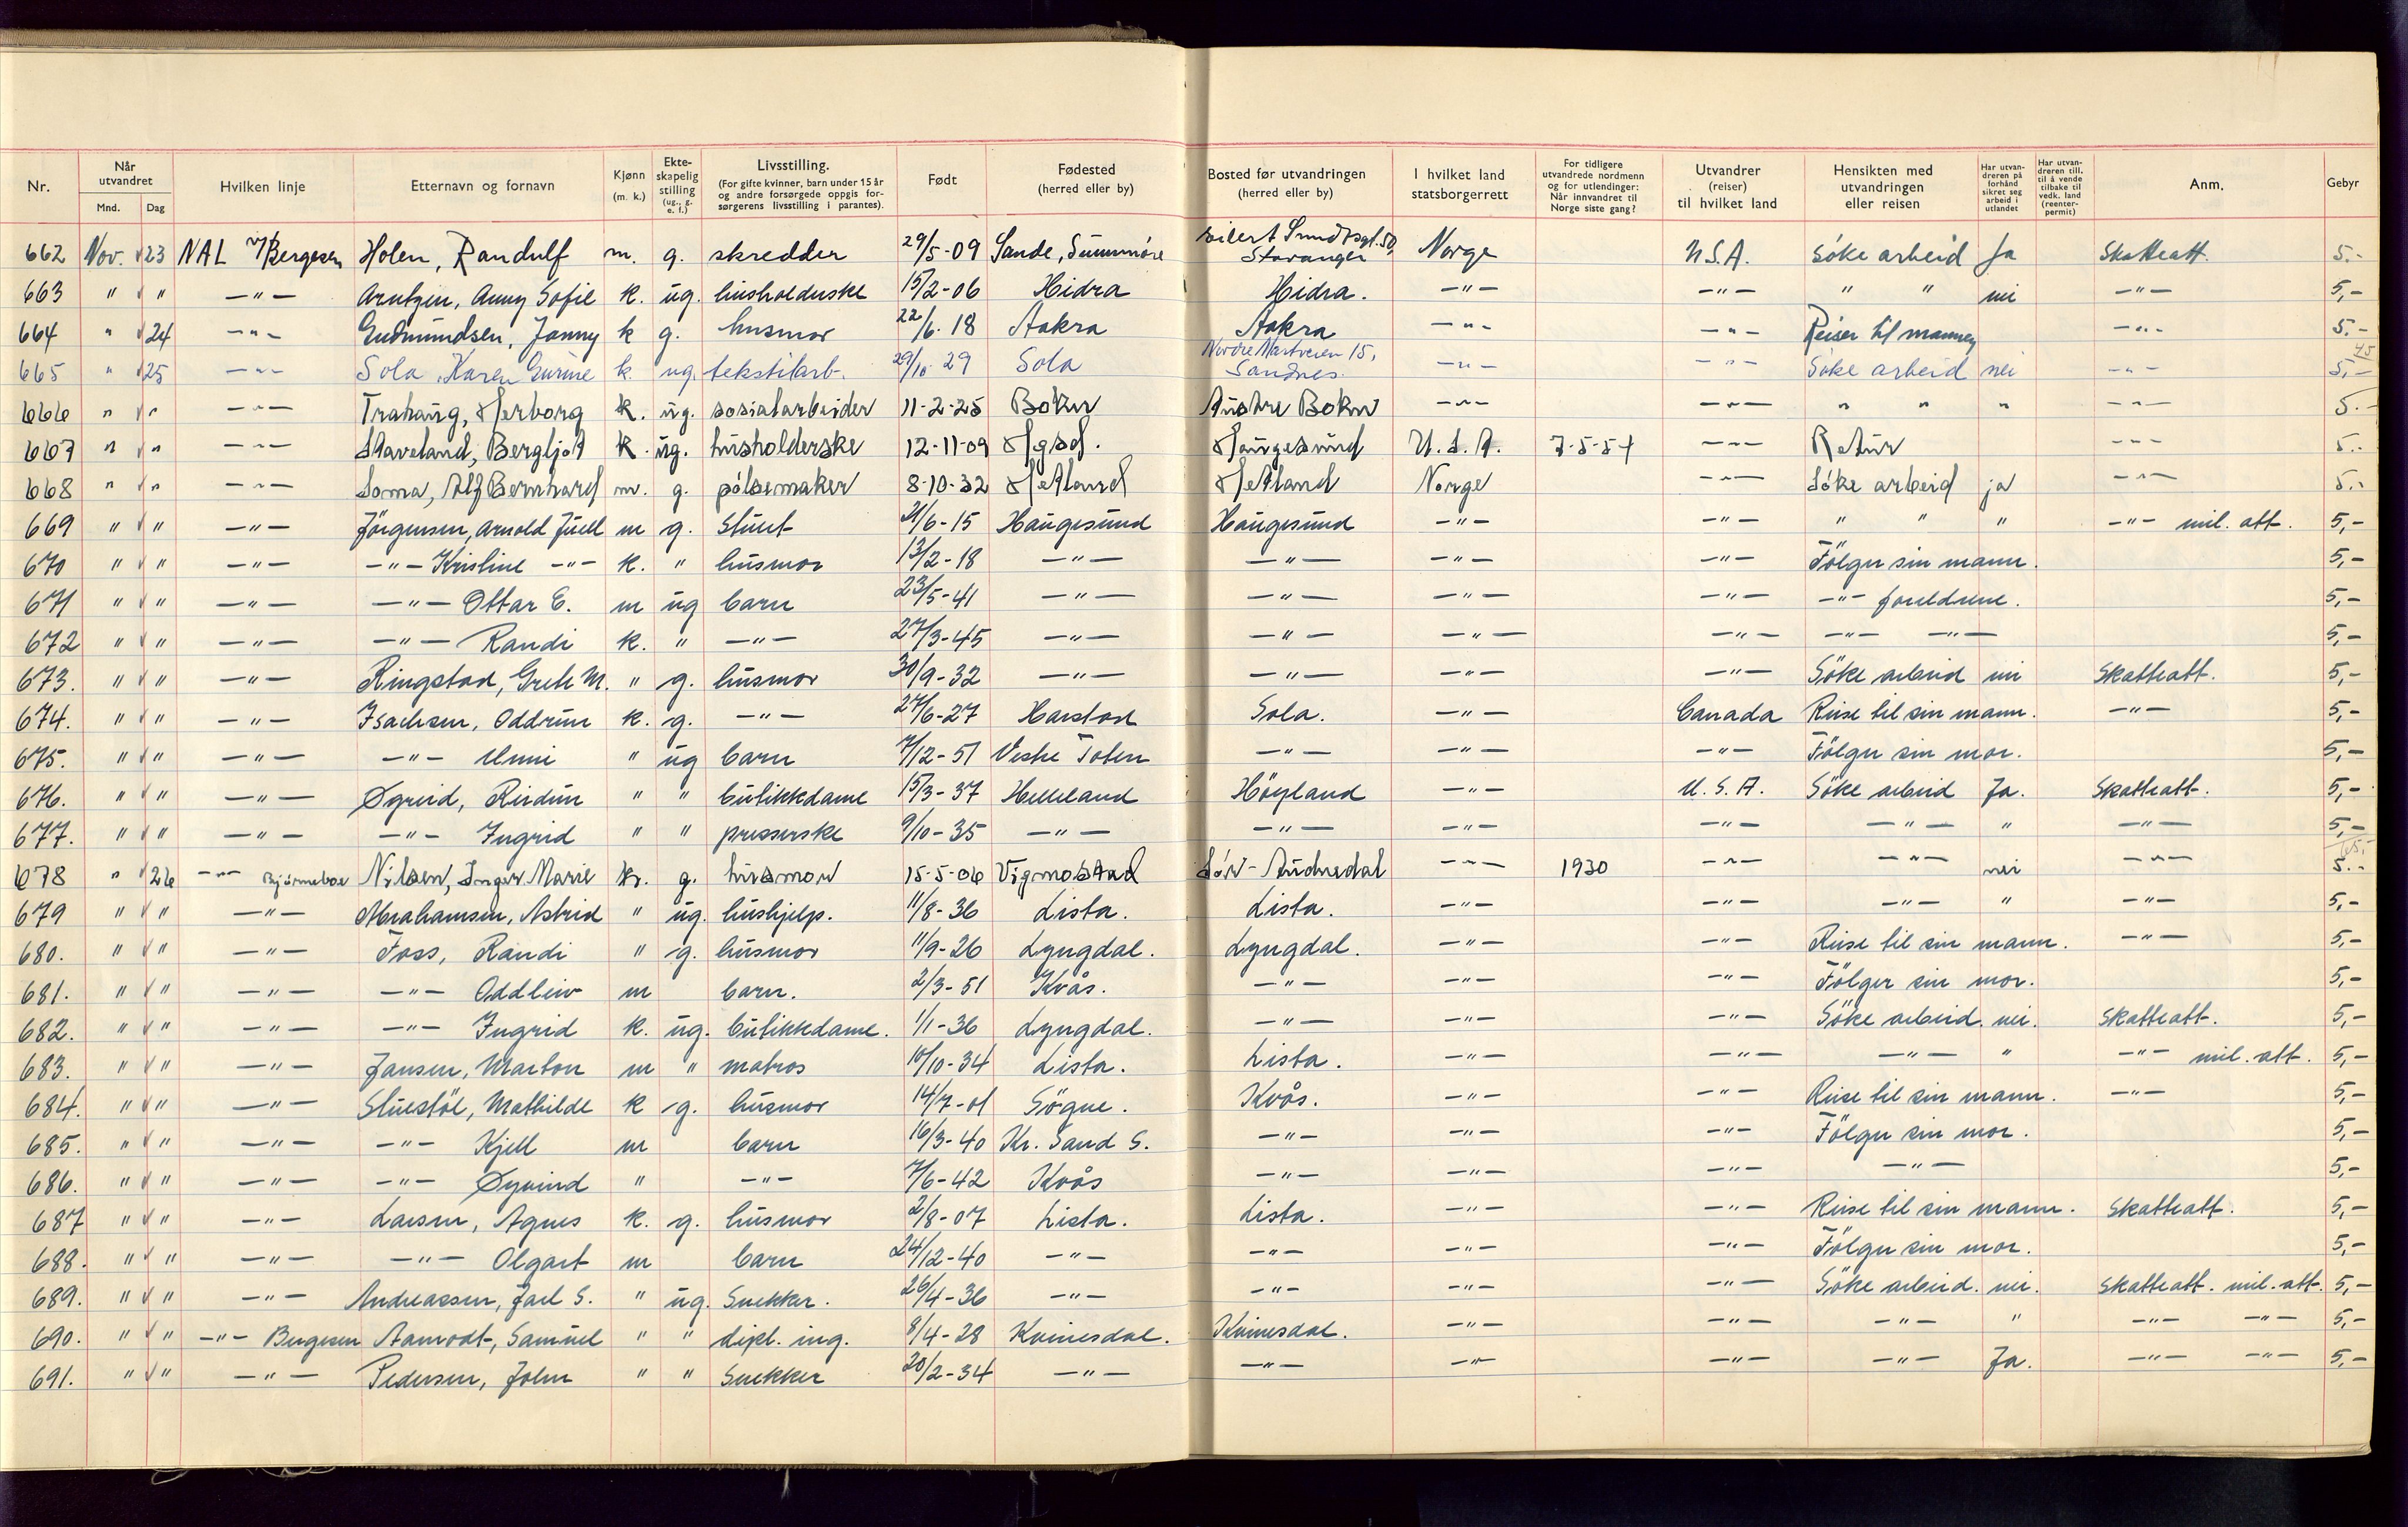 Nr. | Når utvandret Mnd. Dag | Hvilken linje | Etternavn og fornavn | Kjønn (m. k.) | Ekteskapelig stilling (ug., g. e. f.) | Livsstilling. (For gifte kvinner, barn under 15 år og andre forsørgede oppgis forsørgerens livsstilling i parantes). | Født | Fødested (herred eller by) | Bosted før utvandringen (herred eller by) | I hvilket land statsborgerrett | For tidligere utvandrede nordmenn og for utlendinger: Når innvandret til Norge siste gang? | Utvandrer (reiser) til hvilket land | Hensikten med utvandringen eller reisen | Har utvandreren på forhånd sikret seg arbeid i utlandet | Har utvandreren till. til å vende tilbake til vedk. land (reenterpermit) | Anm. | Gebyr
662 Nov. √ 23 NAL v/Bergesen Holen, Randulf m. g. skredder 29/5-09 Sande, Sunnmöre Eilert Sundtsgt. 50, Stavanger Norge U.S.A. Söke arbeid Ja Skatteatt. 5.-
663 " √ " —"— Arntzen, Anny Sofie k. ug. husholderske 15/2-06 Hidra Hidra. —"— —"— " " nei —"— 5,-
664 " √ 24 —"— Gudmundsen, Jonny k g. husmor 22/6. 18 Aakra Aakra —"— —"— Reiser til mannen —"— 5.-
665 " √ 25 —"— Sola, Karen Gurine k. ug. tekstilarb. 29/10 29 Sola Nordre Sandnes. —"— —"— Söke arbeid nei —"— 5,- 45
666 " √ " —"— Trahaug, Herborg k. ug. sosialarbeider 11-2-25 Bokn Austre Bokn —"— —"— " " " —"— 5.-
667 " √ " —"— Staveland, Bergljot k. ug. husholderske 12-11-09 Hgsd. Haugesund U.S.A. 7-5-54 —"— Retur —"— 5.-
668 " √ " —"— Soma, Alf Bernhard m. g. pölsemaker 8-10-32 Hetland Hetland Norge —"— Söke arbeid ja —"— 5.-
669 " √ " —"— Jörgensen, Arnold Juell m g. Stuert 21/6-15 Haugesund Haugesund —"— —"— " " " —"— mil. att. 5,-
670 " √ " —"— —"— Kristine —"— k. " husmor 13/2-18 —"— —"— —"— —"— Fölger sin mann. 5,-
671 " √ " —"— —"— Ottar E. m ug barn 23/5-41 —"— —"— —"— —"— —"— foreldrene. 5,-
672 " √ " —"— —"— Randi k. " —"— 27/3-45 —"— —"— —"— —"— —"— —"— 5,-
673. " √ " —"— Ringstad, Grete M. " g. husmor 30/9-32 —"— —"— —"— —"— Söke arbeid nei Skatteatt. 5,-
674. " √ " —"— Isachsen, Oddrun k. g. —"— 27/6-27 Harstad Sola. —"— Canada Reise til sin mann. —"— 5,-
675. " √ " —"— —"— Unni " ug barn 7/12-51 Vestre Toten —"— —"— —"— Fölger sin mor. 5,-
676. " √ " —"— Øgreid, Reidun " " butikkdame 15/3-37 Helleland Höyland —"— U.S.A. Söke arbeid Ja. Skatteatt. 5,-
677. " √ " —"— —"— Ingrid " " presserske 9/10-35 —"— —"— —"— —"— —"— " —"— 5,-
678 " √ 26 —"— Björneboe Nilsen, Inger Marie k. g. husmor 15-5-06 Vigmostad Sör-Audnedal —"— 1930 —"— —"— nei —"— 5.-
679 " √ " —"— Abrahamsen, Astrid " ug. hushjelp. 11/8-36 Lista. Lista. —"— —"— —"— " —"— 5,-
680. " √ " —"— Foss, Randi " g. husmor 11/9-26 Lyngdal. Lyngdal. —"— —"— Reise til sin mann. —"— 5,-
681. " √ " —"— —"— Oddleiv m barn. 2/3-51 Kvås. —"— —"— —"— Fölger sin mor. 5,-
682. " √ " —"— —"— Ingrid k. ug. butikkdame. 1/1-36 Lyngdal. —"— —"— —"— Söke arbeid. nei. Skatteatt. 5,-
683. " √ " —"— Jansen, Marton m " matros 10/10-34 Lista. Lista. —"— —"— —"— " —"— mil. att. 5,-
684. " √ " —"— Stuestöl, Mathilde k g. husmor 14/7-01 Sögne. Kvås. —"— —"— Reise til sin mann. —"— 5,-
685. " √ " —"— —"— Kjell m barn 16/3-40 Kr. Sand S. —"— —"— —"— Fölger sin mor. 5,-
686. " √ " —"— —"— Øyvind " —"— 7/6-42 Kvås —"— —"— —"— —"— 5,-
687 " √ " —"— Larsen, Agnes k. g. husmor 2/8-07 Lista. Lista. —"— —"— Reise til sin mann. Skatteatt. 5,-
688. " √ " —"— —"— Olgart m barn 24/12-40 —"— —"— —"— —"— Fölger sin mor. 5,-
689. " √ " —"— Andreassen, Jarl S. " ug. Snekker. 26/4-36 —"— —"— —"— —"— Söke arbeid. nei. Skatteatt. mil. att. 5,-
690. " √ " —"— Bergesen Aamodt, Samuel " " dipl. ing. 8/4-28 Kvinesdal. Kvinesdal. —"— —"— —"— " —"— —"— 5,-
691. " √ " —"— Pedersen, John " " Snekker 20/2-34 —"— —"— —"— —"— —"— Ja. —"— —"— 5,-